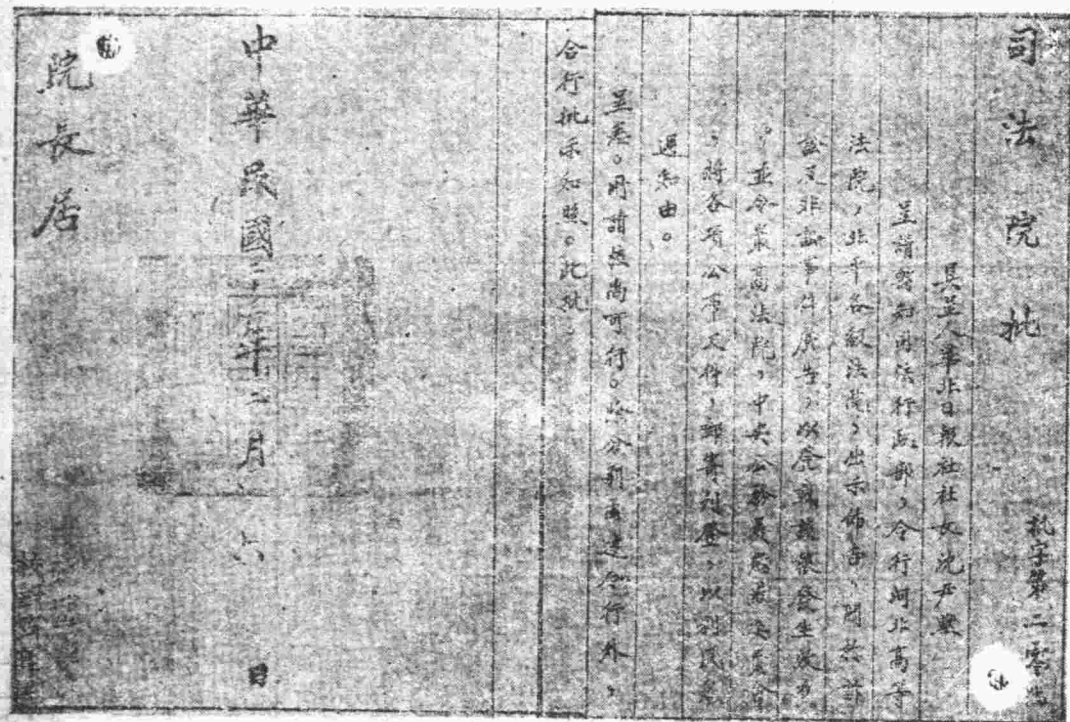 司法院批
批字第二零
具呈人華北日報社社長沈尹默
呈請咨知司法行政部，令行河北高等
法院，北平各級法院，出示佈告，關於訴
訟及非訟事件廣告，以登載該報發生效力
。並令最高法院，中央公務員懲戒委員會
，將各項公布文件，郵寄刊登，以利民衆
週知由。
呈悉。所請尚可行。除分別函達令行外，
合行批示知照。此批。
中華民國二十年二月六日
院長居